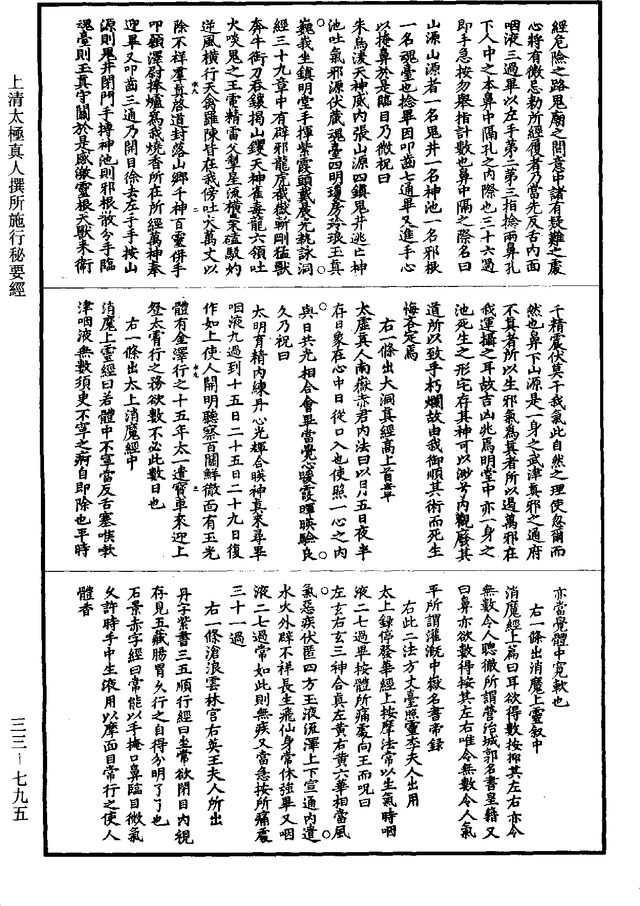 經危險之路鬼廟之間意中諸有疑難之處
心將有微忌勑所經履者乃當先反舌內面
咽液三過畢以左手第二第三指捻兩鼻孔
下人中之本鼻中隔孔之內際也三十六過
即手急按勿舉指計數也鼻中隔之際名曰
山源山源者一名鬼井一名神池一名邪根
一名魂臺也捻畢因叩齒七通畢又進手心
以掩鼻於是臨目乃微祝曰
朱鳥凌天神威內張山源四鎮鬼井逃亡神
池吐氣邪源伏藏魂臺四明瓊房玲琅玉真
巍我坐鎮明堂手揮紫霞頭戴晨光執詠洞
經三十九章中有辟邪龍虎截嶽斬剛猛獸
奔牛銜刀吞鑲揭山钁天神雀毒龍六領吐
火啖鬼之王電精雷父掣星流橫梟磕駮灼
逆風橫行天禽羅陳皆在我傍吐火萬丈以
除不祥羣真啓道封落山鄉千神百靈併手
叩顙澤尉捧爐為我燒香所在所經萬神奉
迎畢又叩齒三通乃開目徐去左手手按山
源則鬼井閉門手搏神池則邪根散分手臨
魂臺則玉真守關於是感激靈根天獸來衛
千精震伏莫干我氣此自然之理使忽爾而
然也鼻下山源是一身之武津真邪之通府
不真者所以生邪氣為真者所以遏萬邪在
我運攝之耳故吉凶兆焉明堂中亦一身之
池死生之形宅存其神可以眇哉內觀廢其
道所以致乎朽爛故由我御順其術而死生
悔吝定焉
右一條出大洞真經高上首章
太虛真人南嶽赤君內法曰以月五日夜半
存日象在心中日從口入也使照一心之內
與日共光相合會畢當覺心暖霞暉映驗良
久乃祝曰
太明育精內練丹心光輝合映神真來尋畢
咽液九過到十五日二十五日二十九日復
作如上使人開明聰察百關鮮徹面有玉光
體有金澤行之十五年太一遣寶車來迎上
登太霄行之務欲數不必此數日也
右一條出太上消魔經中
消魔上靈經曰若體中不寧當反舌塞喉漱
津咽液無數須臾不寧之痾自即除也平時
亦當覺體中寬軟也
右一條出消魔上靈叙中
消魔經上篇曰耳欲得數按抑其左右亦令
無數令人聰徹所謂營治城郭名書皇籍又
曰鼻亦欲數得按其左右唯令無數令人氣
平所謂灌溉中嶽名書帝錄
右此二法方丈臺照靈李夫人出用
太上錄停發華經上按摩法常以生氣時咽
液二七過畢按體所痛處向王而呪曰
左玄右玄三神合真左黃右黃六華相當風
氣惡疾伏匿四方玉液流澤上下宣通內遣
水火外辟不祥長生飛仙身常休強畢又咽
液二七過常如此則無疾又當急按所痛處
三十一過
右一條滄浪雲林宮右英王夫人所出
丹字紫書三五順行經曰坐常欲閉目內視
存見五藏腸胃久行之自得分明了了也
石景赤字經曰常能以手掩口鼻臨目微氣
久許時手中生液用以摩面目常行之使人
體香
上清太極真人撰所施行秘要經
三三—七九五